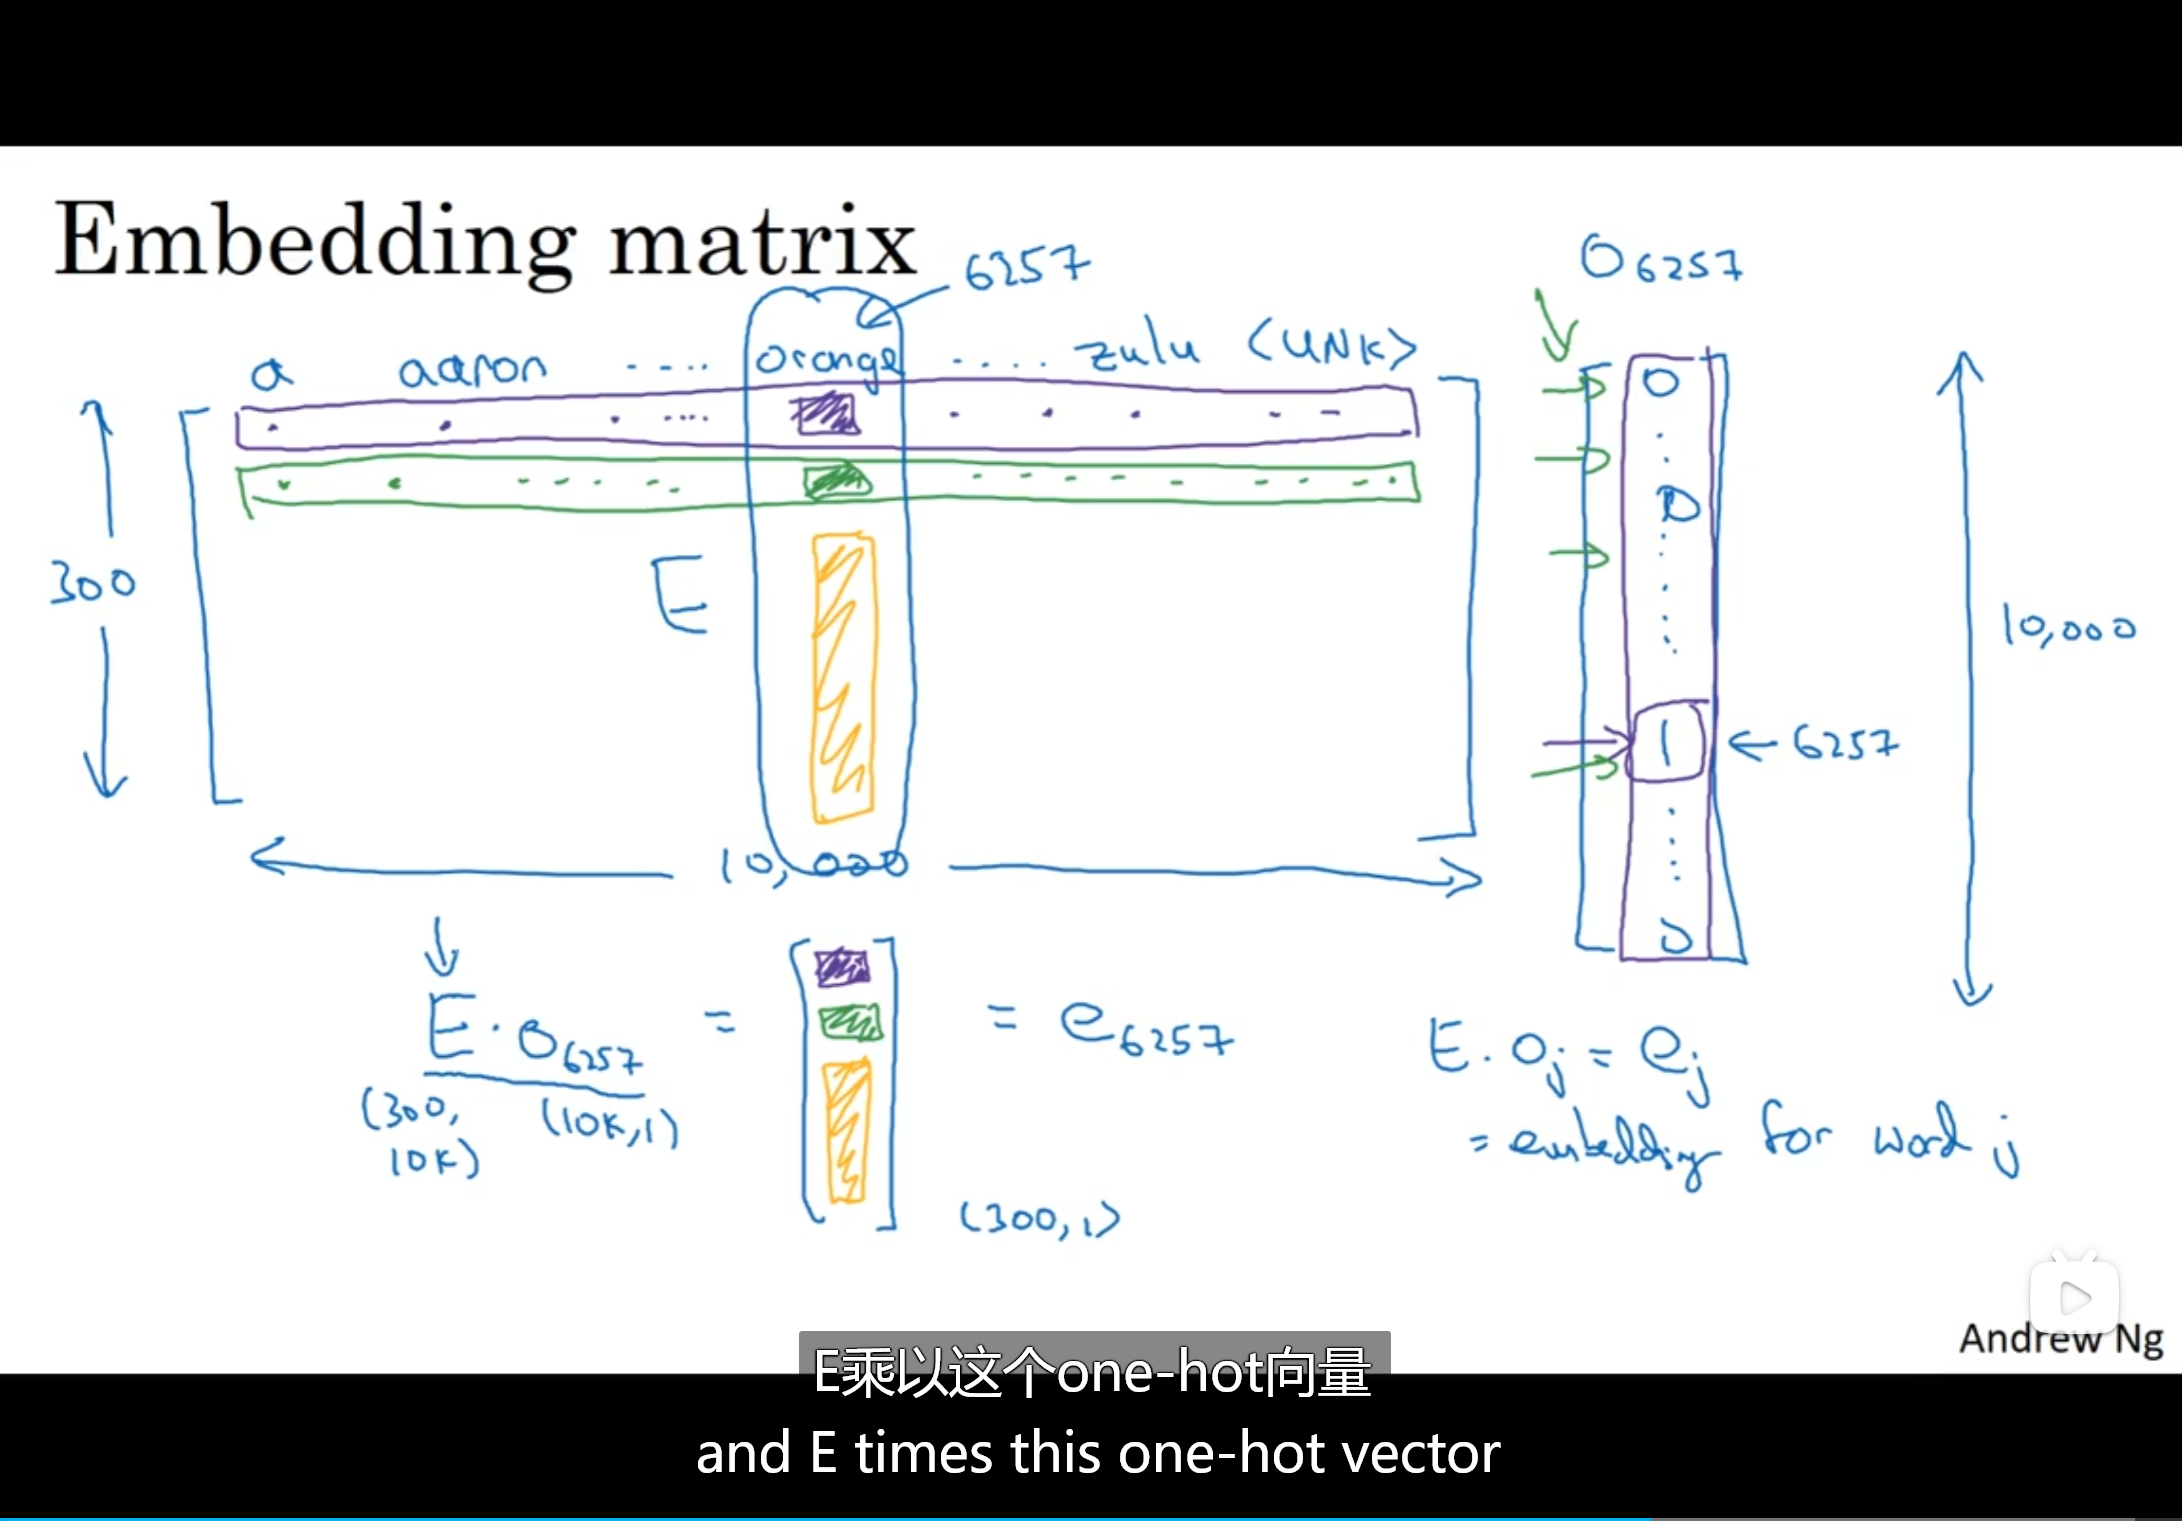 Embedding matrix
6257
O6257
a aaron ..... orange ..... zulu <UNK>
0
0
300
E
10,000
1 ← 6257
10,000
0
E · O6257 = [ ] = e6257
(300, 10K) (10K,1)
(300,1)
E · oj = ej
= embedding for word j
Andrew Ng
E乘以这个one-hot向量
and E times this one-hot vector